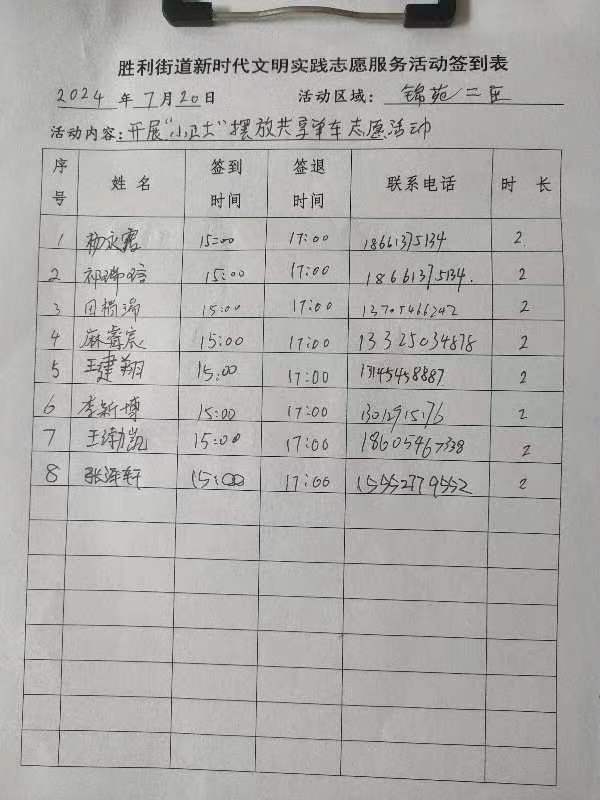 胜利街道新时代文明实践志愿服务活动签到表
2024 年 7 月 20 日 活动区域: 锦苑二区
活动内容: 开展"小卫士"摆放共享单车志愿活动
序号 姓名 签到时间 签退时间 联系电话 时长
1 杨永露 15:00 17:00 18661375134 2
2 祁 15:00 17:00 18661375134. 2
3 田 15:00 17:00 13705466242 2
4 麻 宸 15:00 17:00 13325034878 2
5 王建翔 15:00 17:00 13145458887 2
6 李新博 15:00 17:00 13012915176 2
7 王 凯 15:00 17:00 18605467338 2
8 张 轩 15:00 17:00 15552779552 2